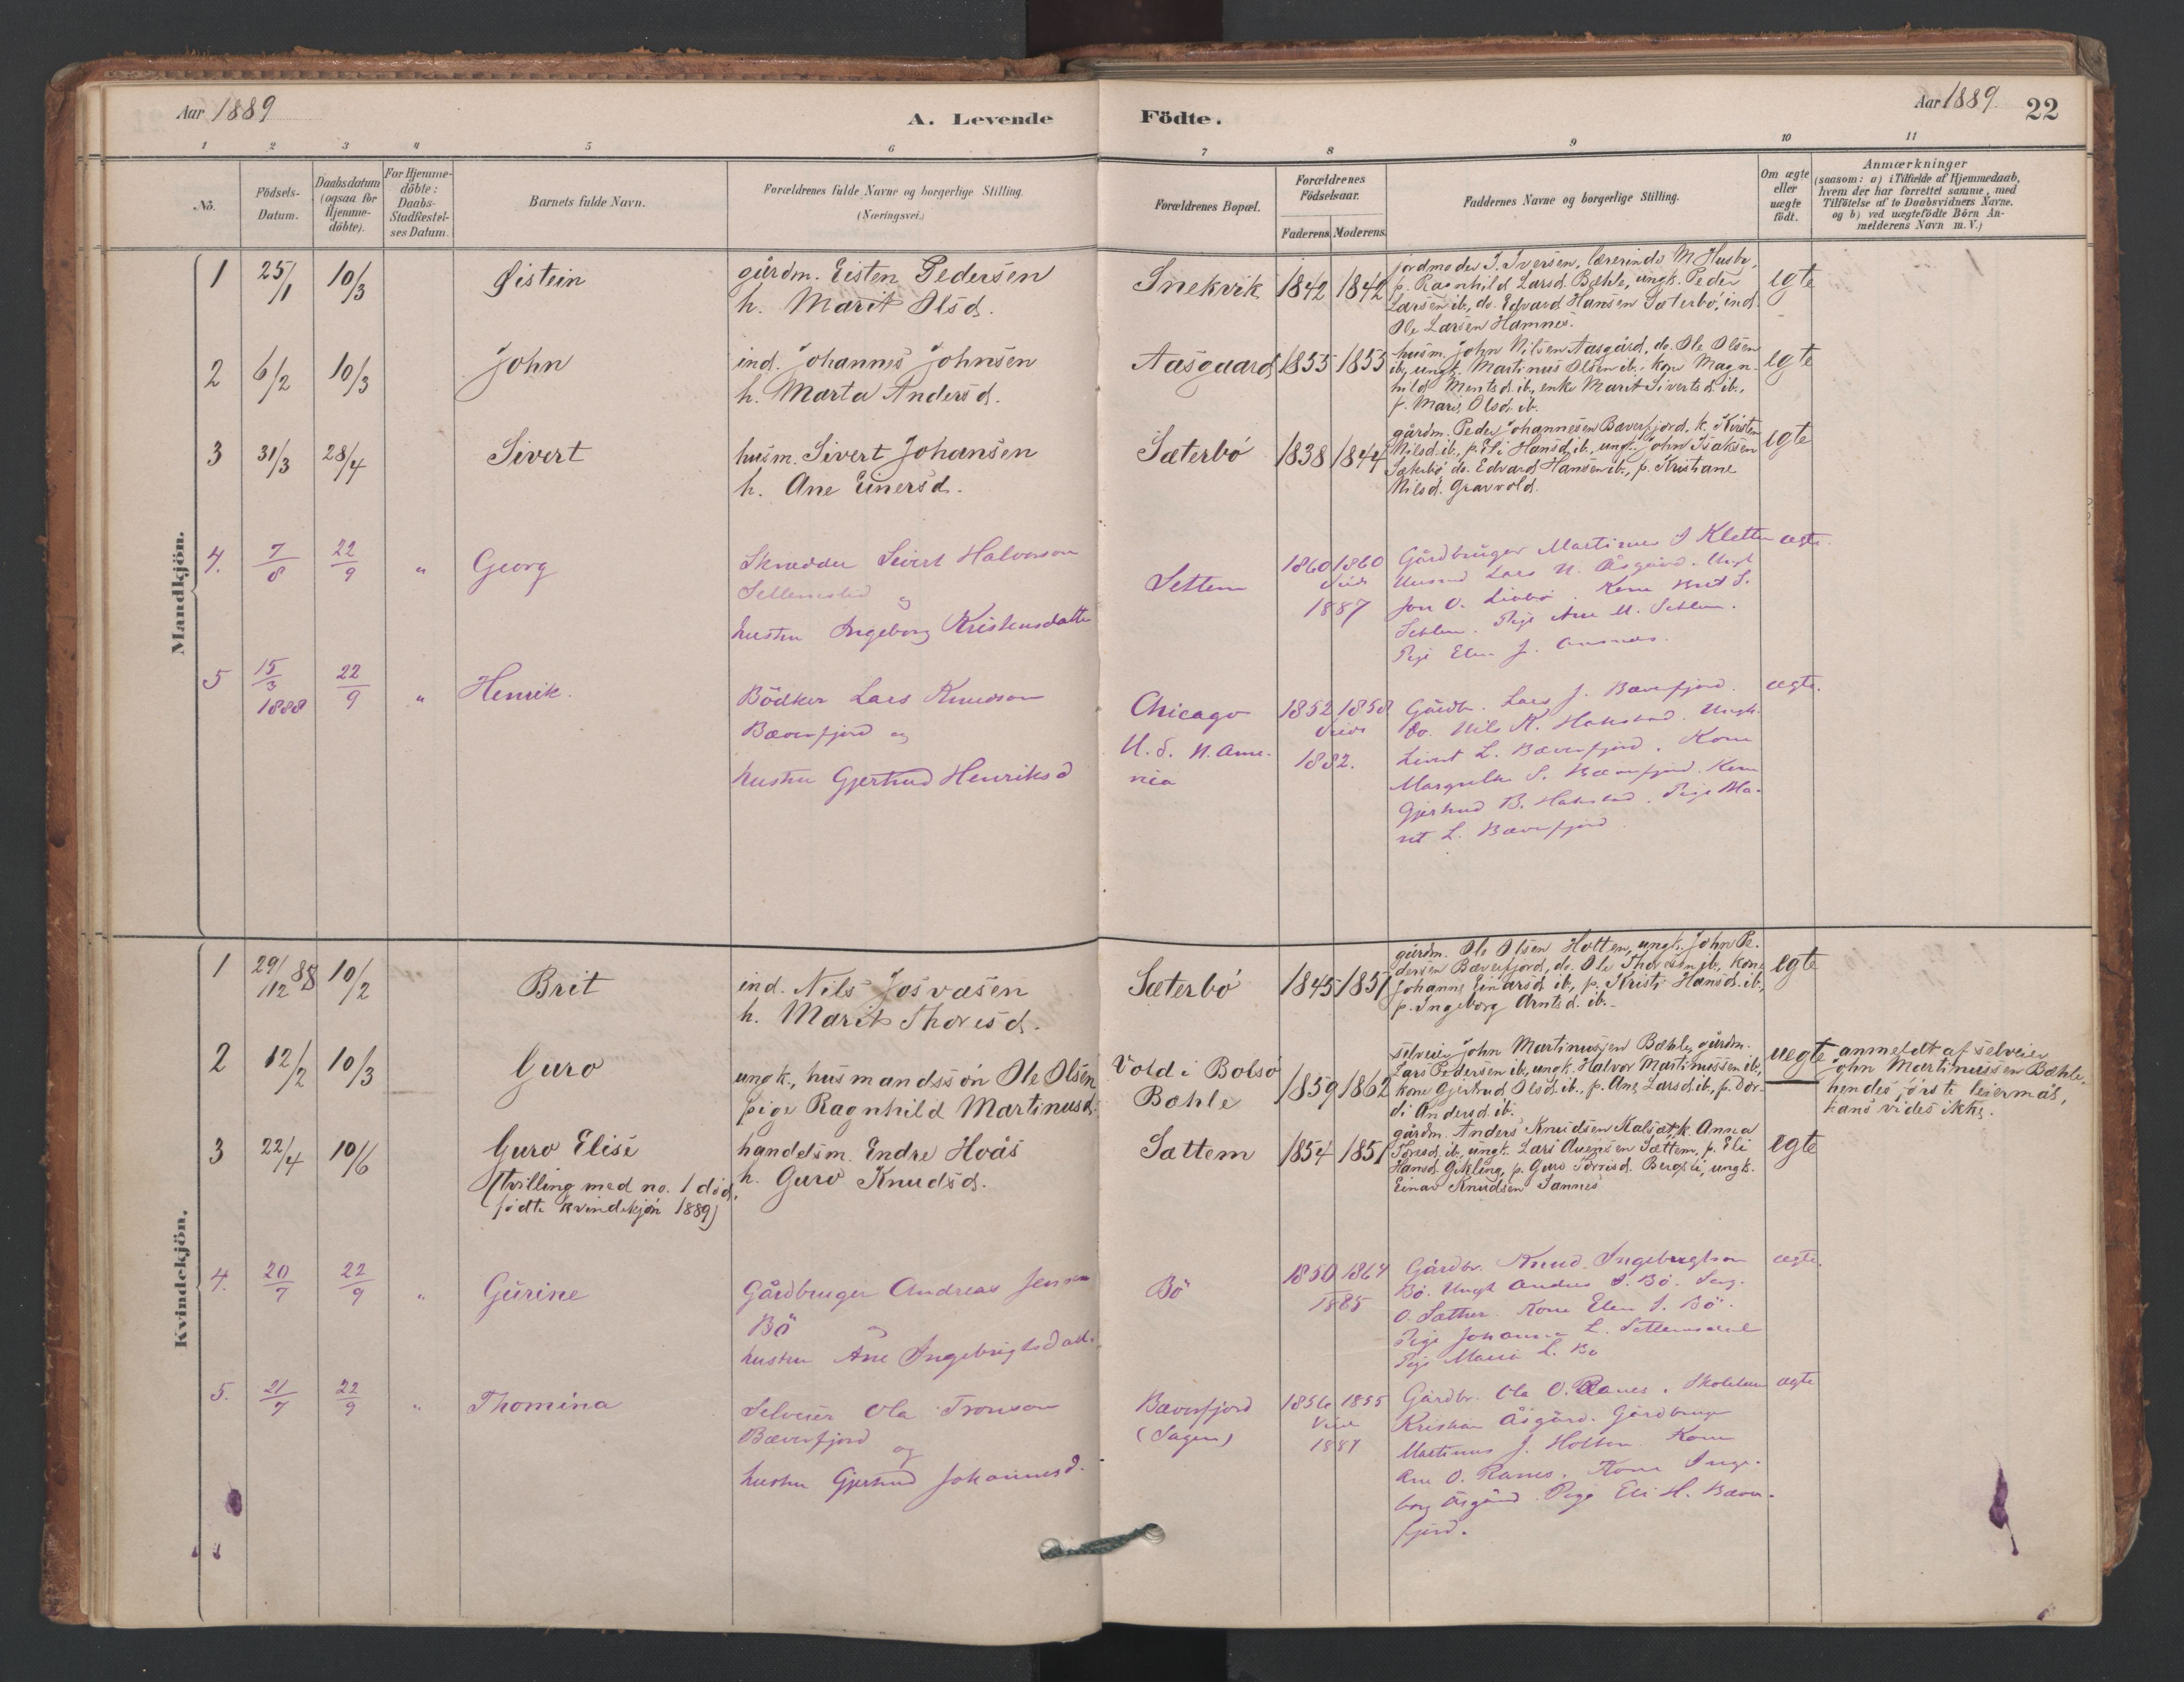 Aar 1889
A. Levende Födte.
Aar 1889. 22
1 2 3 4 5 6 7 8 9 10 11
No.
Födsels-
Datum.
Daabsdatum
(ogsaa for
Hjemme-
döbte).
For Hjemme-
döbte:
Daabs-
Stadfæstel-
ses Datum.
Barnets fulde Navn.
Forældrenes fulde Navne og borgerlige Stilling.
(Næringsvei.)
Forældrenes Bopæl.
Forældrenes
Födselsaar.
Faderens. Moderens.
Faddernes Navne og borgerlige Stilling.
Om ægte
eller
uægte
födt.
Anmærkninger
(saasom: a) i Tilfælde af Hjemmedaab,
hvem der har forrettet samme, med
Tilföielse af to Daabsvidners Navne.
og b) ved uægtefödte Börn An-
melderens Navn m.V.)
Mandkjön.
1 25/1 10/3 Øistein
gårdm. Eisten Pedersen
h. Marit Olsd.
Snekvik 1842 1842
jordmoder I. Iversen, lærerinde M Husby,
p. Ragnhild Larsd. Bæhle, ungk. Peder
Larsen ib., do. Edvard Hansen Sæterbö, ind.
Ole Larsen Hamnes.
egte
2 6/2 10/3 John
ind. Johannes Johnsen
h. Marta Andersd.
Aasgaard 1855 1855
husm. John Nilsen Aasgård, do. Ole Olsen
ib., ungk. Martinus Olsen ib., kone Magn-
hild Mentsd. ib., enke Marit Sivertsd. ib.,
p. Marit Olsd. ib.
egte
3 31/3 28/4 Sivert
husm. Sivert Johansen
h. Ane Einersd.
Sæterbö 1838 1844
gårdm. Peder Johannesen Bæverfjord, k. Kirsten
Nilsd. ib., p. Eli Hansd. ib., ungk. John Isaksen
Sæterbö do. Edvard Hansen ib., p. Kristiane
Nilsd. Gravvold.
egte
4. 7/8 22/9 " Georg
Skrædder Sivert Halvorson
Settemslid og
hustru Ingeborg Kristensdatte
Settem
1860 1860
Viede
1887
Gårdbruger Martinus S Kletten
Husmd Lars N. Åsgård. Ungk
Jon O. . Kone Brit S.
Settem. Pige Ane M. Settem.
Pige Elen J.
ægte.
5 15/3 1888 22/9 " Henrik.
Bödker Lars Knudson
Bæverfjord og
hustru Gjertrud Henriksd
Chicago
U. S. N. Ame-
rica
1852 1858
Viede
1882.
Gårdb. Lars J. Bæverfjord.
do. Nils K. Hakstad. Ungk.
Sivert L. Bæverfjord. Kone
Margrethe S. Bæverfjord. Kone
Gjertrud B. Hakstad. Pige Ma-
rit L. Bæverfjord.
ægte.
Kvindekjön.
1 29/12 88 10/2 Brit
ind. Nils Josvasen
h. Marit Thoresd.
Sæterbö 1845 1851
gårdm. Ole Olsen Holten, ungk. John Pe-
dersen Bæverfjord, do. Ole Thoresen ib., kone
Johanne Einarsd. ib., p. Kristi Hansd. ib.,
p. Ingeborg Arntsd. ib.
egte
2 12/2 10/3 Guro
ungk., husmandssön Ole Olsen
pige Ragnhild Martinusd.
Vold i Bolsö
Bæhle
1859 1862
selveier John Martinussen Bæhle, gårdm.
Lars Pedersen ib., ungk. Halvor Martinussen ib.,
kone Gjertrud Olsd. ib., p. Ane Larsd. ib., p. Dor-
di Andersd. ib.
uegte
anmeldt af selveier
John Martinussen Bæhle,
hendes förste leiermål,
hans vides ikke.
3 22/4 10/6 Guro Elise
(tvilling med no. 1 död-
födte kvindekjön 1889)
handelsm. Endre Hoås
h. Guro Knudsd.
Sættem 1854 1851
gårdm. Anders Knudsen Kalsæt, k. Anna
Toresd. ib., ungk. Lars Avensen Sættem, p. Eli
Hansd. Gikling, p. Guro Torrisd. Bergsli, ungk.
Einar Knudsen Sannes
egte
4. 20/7 22/9 " Gurine
Gårdbruger Andreas Jensen
Bö
hustru Ane Ingebrigtsdatt.
Bö
1850 1864
1885
Gårdbr. Knud Ingebrigtson
Bö. Ungk Anders I. Bö.
O. Sæther. Kone Elen I. Bö.
Pige Johanna L. Settemsdal
Pige Marit L. Bö
ægte.
5. 21/7 22/9 " Thomina
Selveier Ola Tronson
Bæverfjord
og
hustru Gjertrud Johannesd.
Bæverfjord
(Sagen)
1856 1855
Viede
1887
Gårdbr. Ola O. Ranes.
Kristian Åsgård. Gårdbruger
Martinus J. Holten. Kone
Ane O. Ranes. Kone Inge-
borg Åsgård. Pige Eli H. Bæver-
fjord.
ægte